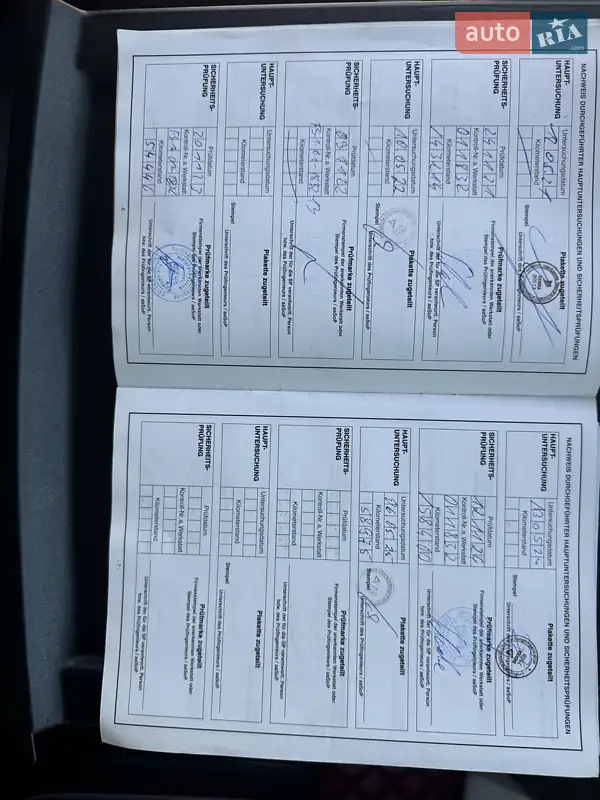 auto RIA.com
NACHWEIS DURCHGEFÜHRTER HAUPTUNTERSUCHUNGEN UND SICHERHEITSPRÜFUNGEN
HAUPT-
UNTERSUCHUNG
Untersuchungsdatum
Kilometerstand
Stempel
Plakette zugeteilt
Unterschrift des Prüfingenieurs / aaSoP
SICHERHEITS-
PRÜFUNG
Prüfdatum
24 11 21
Kontroll-Nr. a. Werkstatt
Kilometerstand
143414
Prüfmarke zugeteilt
Firmenstempel der anerkannten Werkstatt oder
Stempel des Prüfingenieurs / aaSoP
Unterschrift der für die SP verantwortl. Person
bzw. des Prüfingenieurs / aaSoP
HAUPT-
UNTERSUCHUNG
Untersuchungsdatum
10 05 22
Kilometerstand
Stempel
Plakette zugeteilt
Unterschrift des Prüfingenieurs / aaSoP
SICHERHEITS-
PRÜFUNG
Prüfdatum
Kontroll-Nr. a. Werkstatt
Kilometerstand
Prüfmarke zugeteilt
Firmenstempel der anerkannten Werkstatt oder
Stempel des Prüfingenieurs / aaSoP
Unterschrift der für die SP verantwortl. Person
bzw. des Prüfingenieurs / aaSoP
HAUPT-
UNTERSUCHUNG
Untersuchungsdatum
Kilometerstand
Stempel
Plakette zugeteilt
Unterschrift des Prüfingenieurs / aaSoP
SICHERHEITS-
PRÜFUNG
Prüfdatum
Kontroll-Nr. a. Werkstatt
Kilometerstand
Prüfmarke zugeteilt
Firmenstempel der anerkannten Werkstatt oder
Stempel des Prüfingenieurs / aaSoP
Unterschrift der für die SP verantwortl. Person
bzw. des Prüfingenieurs / aaSoP
NACHWEIS DURCHGEFÜHRTER HAUPTUNTERSUCHUNGEN UND SICHERHEITSPRÜFUNGEN
HAUPT-
UNTERSUCHUNG
Untersuchungsdatum
130524
Kilometerstand
Stempel
Plakette zugeteilt
Unterschrift des Prüfingenieurs / aaSoP
SICHERHEITS-
PRÜFUNG
Prüfdatum
Kontroll-Nr. a. Werkstatt
Kilometerstand
Prüfmarke zugeteilt
Firmenstempel der anerkannten Werkstatt oder
Stempel des Prüfingenieurs / aaSoP
Unterschrift der für die SP verantwortl. Person
bzw. des Prüfingenieurs / aaSoP
HAUPT-
UNTERSUCHUNG
Untersuchungsdatum
Kilometerstand
Stempel
Plakette zugeteilt
Unterschrift des Prüfingenieurs / aaSoP
SICHERHEITS-
PRÜFUNG
Prüfdatum
Kontroll-Nr. a. Werkstatt
Kilometerstand
Prüfmarke zugeteilt
Firmenstempel der anerkannten Werkstatt oder
Stempel des Prüfingenieurs / aaSoP
Unterschrift der für die SP verantwortl. Person
bzw. des Prüfingenieurs / aaSoP
HAUPT-
UNTERSUCHUNG
Untersuchungsdatum
Kilometerstand
Stempel
Plakette zugeteilt
Unterschrift des Prüfingenieurs / aaSoP
SICHERHEITS-
PRÜFUNG
Prüfdatum
Kontroll-Nr. a. Werkstatt
Kilometerstand
Prüfmarke zugeteilt
Firmenstempel der anerkannten Werkstatt oder
Stempel des Prüfingenieurs / aaSoP
Unterschrift der für die SP verantwortl. Person
bzw. des Prüfingenieurs / aaSoP